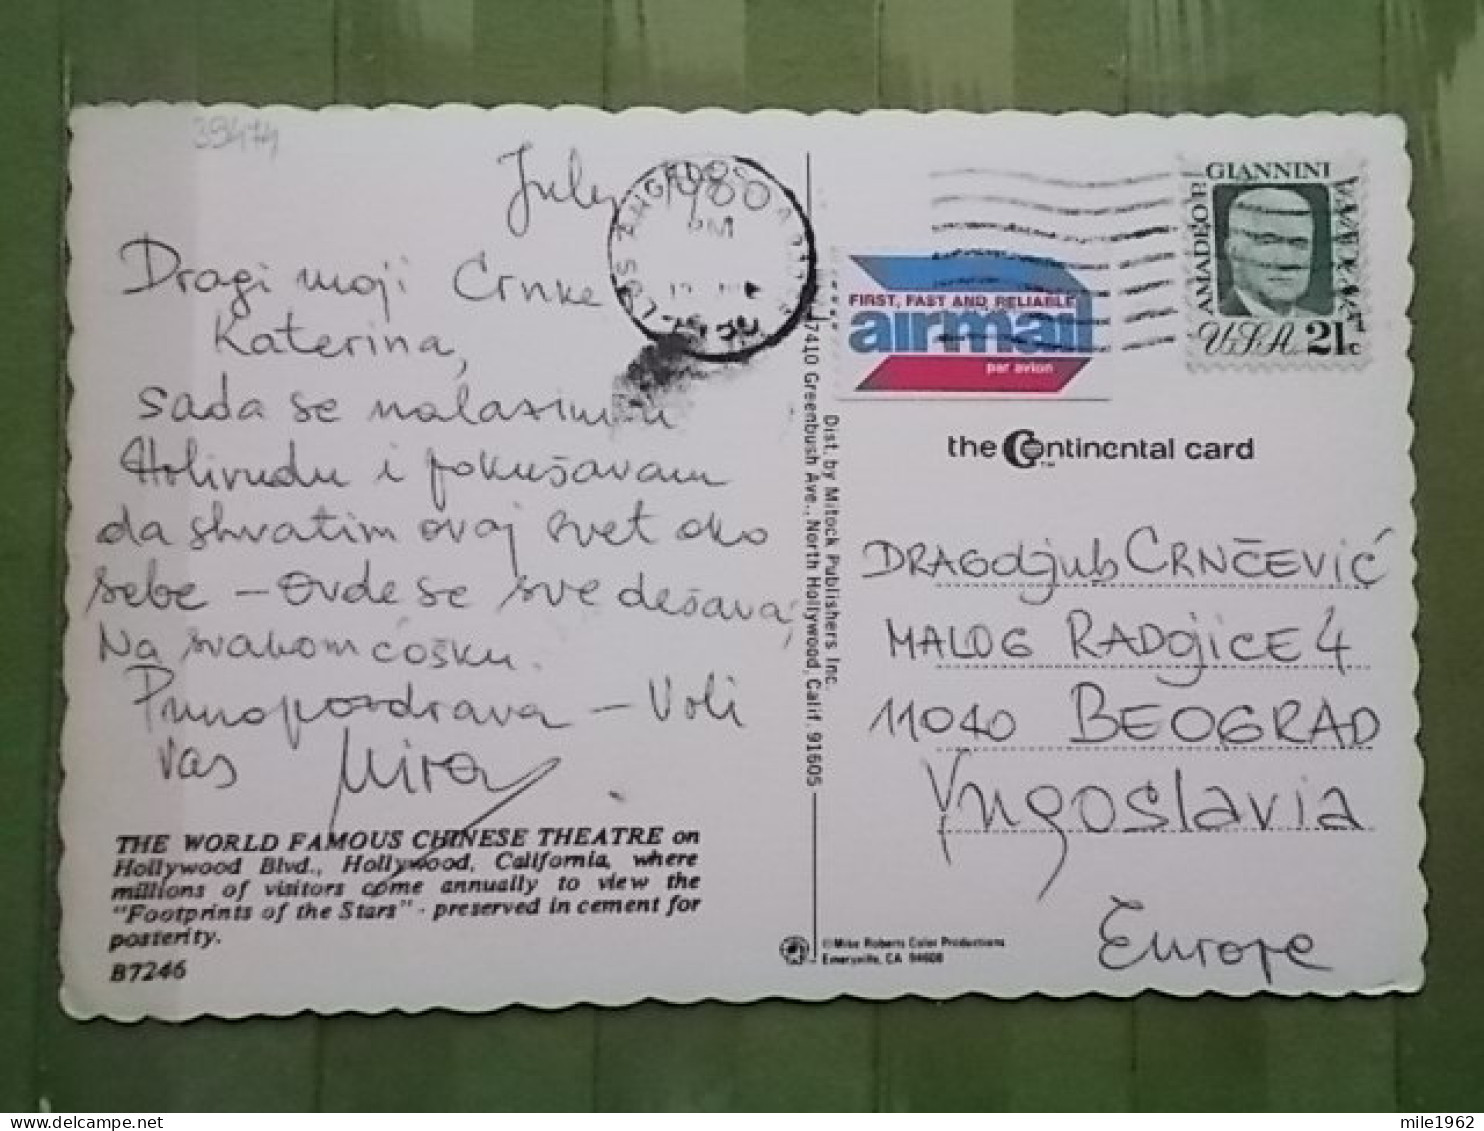 39474
July 1980
PM
Dragi moji Crnke
Katerina,
sada se nalazim u
Holivudu i pokušavam
da shvatim ovaj svet oko
sebe – Ovde se sve dešava,
Na svakom ćošku.
Puno pozdrava – Voli
vas Mira
THE WORLD FAMOUS CHINESE THEATRE on
Hollywood Blvd., Hollywood, California, where
millions of visitors come annually to view the
"Footprints of the Stars" - preserved in cement for
posterity.
B7246
Dist. by Mitock Publishers Inc.
7410 Greenbush Ave., North Hollywood, Calif. 91605
FIRST, FAST AND RELIABLE
airmail
par avion
AMADEO P. GIANNINI
USA 21c
the Continental card
DRAGOdjub CRNČEVIĆ
MALOG RADOJICE 4
11040 BEOGRAD
Yugoslavia
Europe
©Mike Roberts Color Productions
Emeryville, CA 94608
mile1962